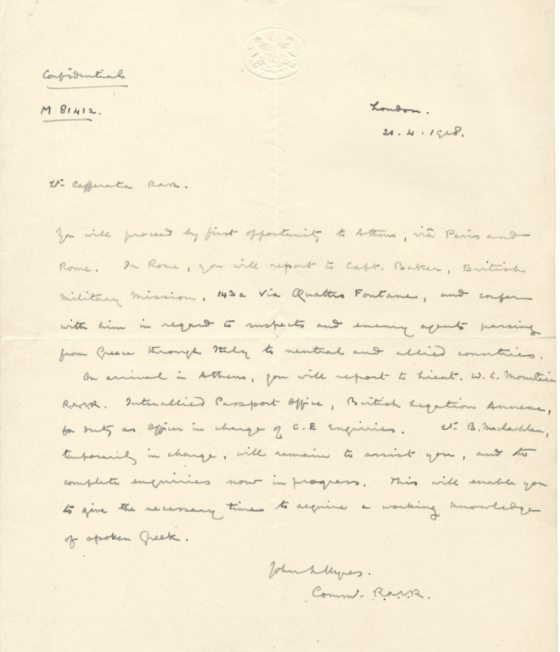 Confidential
M 81412.
London.
21. 4. 1918.
Lt. Cafferata R.N.V.R.
You will proceed by first opportunity to Athens, viâ Paris and
Rome. In Rome, you will report to Capt. Baker, British
Military Mission, 143a Via Quattro Fontane, and confer
with him in regard to suspects and enemy agents passing
from Greece through Italy to neutral and allied countries.
On arrival in Athens, you will report to Lieut. W. C. Mountain
R.N.V.R. Interallied Passport Office, British Legation Annexe,
for duty as Officer in charge of C.E Enquiries. Lt. B. Maclachlan,
temporarily in charge, will remain to assist you, and to
complete enquiries now in progress. This will enable you
to give the necessary time to acquire a working knowledge
of spoken Greek.
John L Myres.
Commr. R.N.V.R.